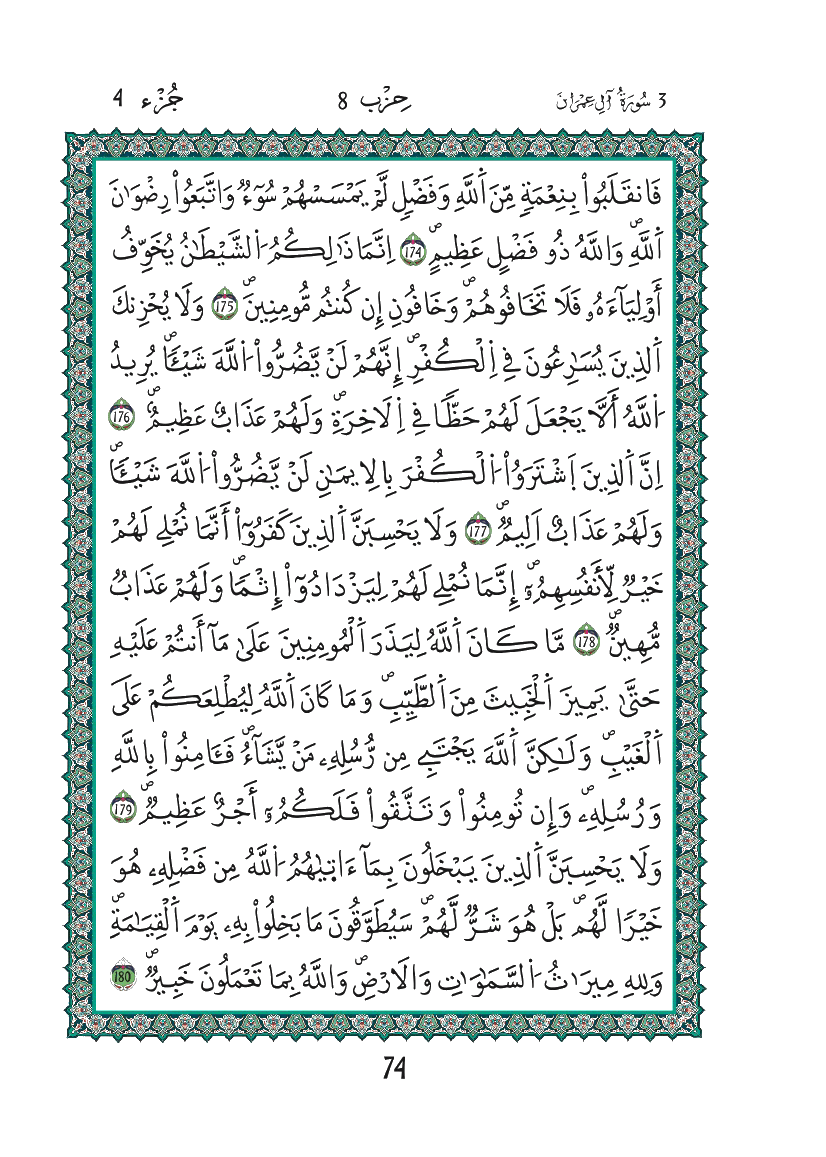 3 سُورَةُ آلِ عِمْرَانَ
حِزْب 8
جُزْء 4
فَانقَلَبُواْ بِنِعْمَةٖ مِّنَ اَ۬للَّهِ وَفَضْلٖ لَّمْ يَمْسَسْهُمْ سُوٓءٞ وَاتَّبَعُواْ رِضْوَٰنَ
اَ۬للَّهِۖ وَاللَّهُ ذُو فَضْلٍ عَظِيمٍۖ 174 اِنَّمَا ذَٰلِكُمُ اُ۬لشَّيْطَٰنُ يُخَوِّفُ
أَوْلِيَآءَهُۥ فَلَا تَخَافُوهُمْۖ وَخَافُونِ إِن كُنتُم مُّومِنِينَۖ 175 وَلَا يُحْزِنكَ
اَ۬لذِينَ يُسَٰرِعُونَ فِي اِ۬لْكُفْرِۖ إِنَّهُمْ لَنْ يَّضُرُّواْ اُ۬للَّهَ شَيْـٔٗاۖ يُرِيدُ
اُ۬للَّهُ أَلَّا يَجْعَلَ لَهُمْ حَظّٗا فِي اِ۬لَاخِرَةِۖ وَلَهُمْ عَذَابٌ عَظِيمٌۖ 176
اِنَّ اَ۬لذِينَ اَ۪شْتَرَوُاْ اُ۬لْكُفْرَ بِالِايمَٰنِ لَنْ يَّضُرُّواْ اُ۬للَّهَ شَيْـٔٗاۖ
وَلَهُمْ عَذَابٌ اَلِيمٞۖ 177 وَلَا يَحْسِبَنَّ اَ۬لذِينَ كَفَرُوٓاْ أَنَّمَا نُمْلِے لَهُمْ
خَيْرٞ لِّأَنفُسِهِمُۥٓۖ إِنَّمَا نُمْلِے لَهُمْ لِيَزْدَادُوٓاْ إِثْماٗۖ وَلَهُمْ عَذَابٞ
مُّهِينٞۖ 178 مَّا كَانَ اَ۬للَّهُ لِيَذَرَ اَ۬لْمُومِنِينَ عَلَىٰ مَآ أَنتُمْ عَلَيْهِ
حَتَّىٰ يَمِيزَ اَ۬لْخَبِيثَ مِنَ اَ۬لطَّيِّبِۖ وَمَا كَانَ اَ۬للَّهُ لِيُطْلِعَكُمْ عَلَى
اَ۬لْغَيْبِۖ وَلَٰكِنَّ اَ۬للَّهَ يَجْتَبِے مِن رُّسُلِهِۦ مَنْ يَّشَآءُۖ فَـَٔامِنُواْ بِاللَّهِ
وَرُسُلِهِۦۖ وَإِن تُومِنُواْ وَتَتَّقُواْ فَلَكُمُۥٓ أَجْرٌ عَظِيمٞۖ 179
وَلَا يَحْسِبَنَّ اَ۬لذِينَ يَبْخَلُونَ بِمَآ ءَاتَىٰهُمُ اُ۬للَّهُ مِن فَضْلِهِۦ هُوَ
خَيْرٗا لَّهُمۖ بَلْ هُوَ شَرّٞ لَّهُمْۖ سَيُطَوَّقُونَ مَا بَخِلُواْ بِهِۦ يَوْمَ اَ۬لْقِيَٰمَةِۖ
وَلِلهِ مِيرَٰثُ اُ۬لسَّمَٰوَٰتِ وَالَارْضِۖ وَاللَّهُ بِمَا تَعْمَلُونَ خَبِيرٞۖ 180
74